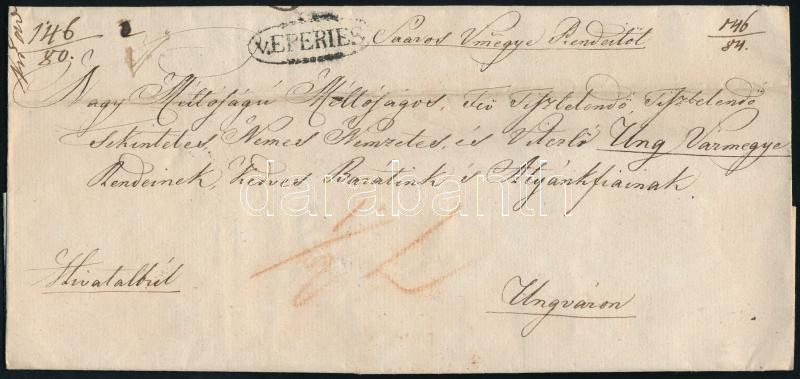 146/80.
V. EPERIES
Saaros Vmegye Rendeitöl
146/84.
Nagy Méltóságú Méltóságos, Fő Tisztelendö Tisztelendö
Tekintetes, Nemes Nemzetes, és Vitézlö Ung Vármegye
Rendeinek, Kedves Baratink és Atyánkfiainak
Hivatalbúl
Ungváron
darabanth